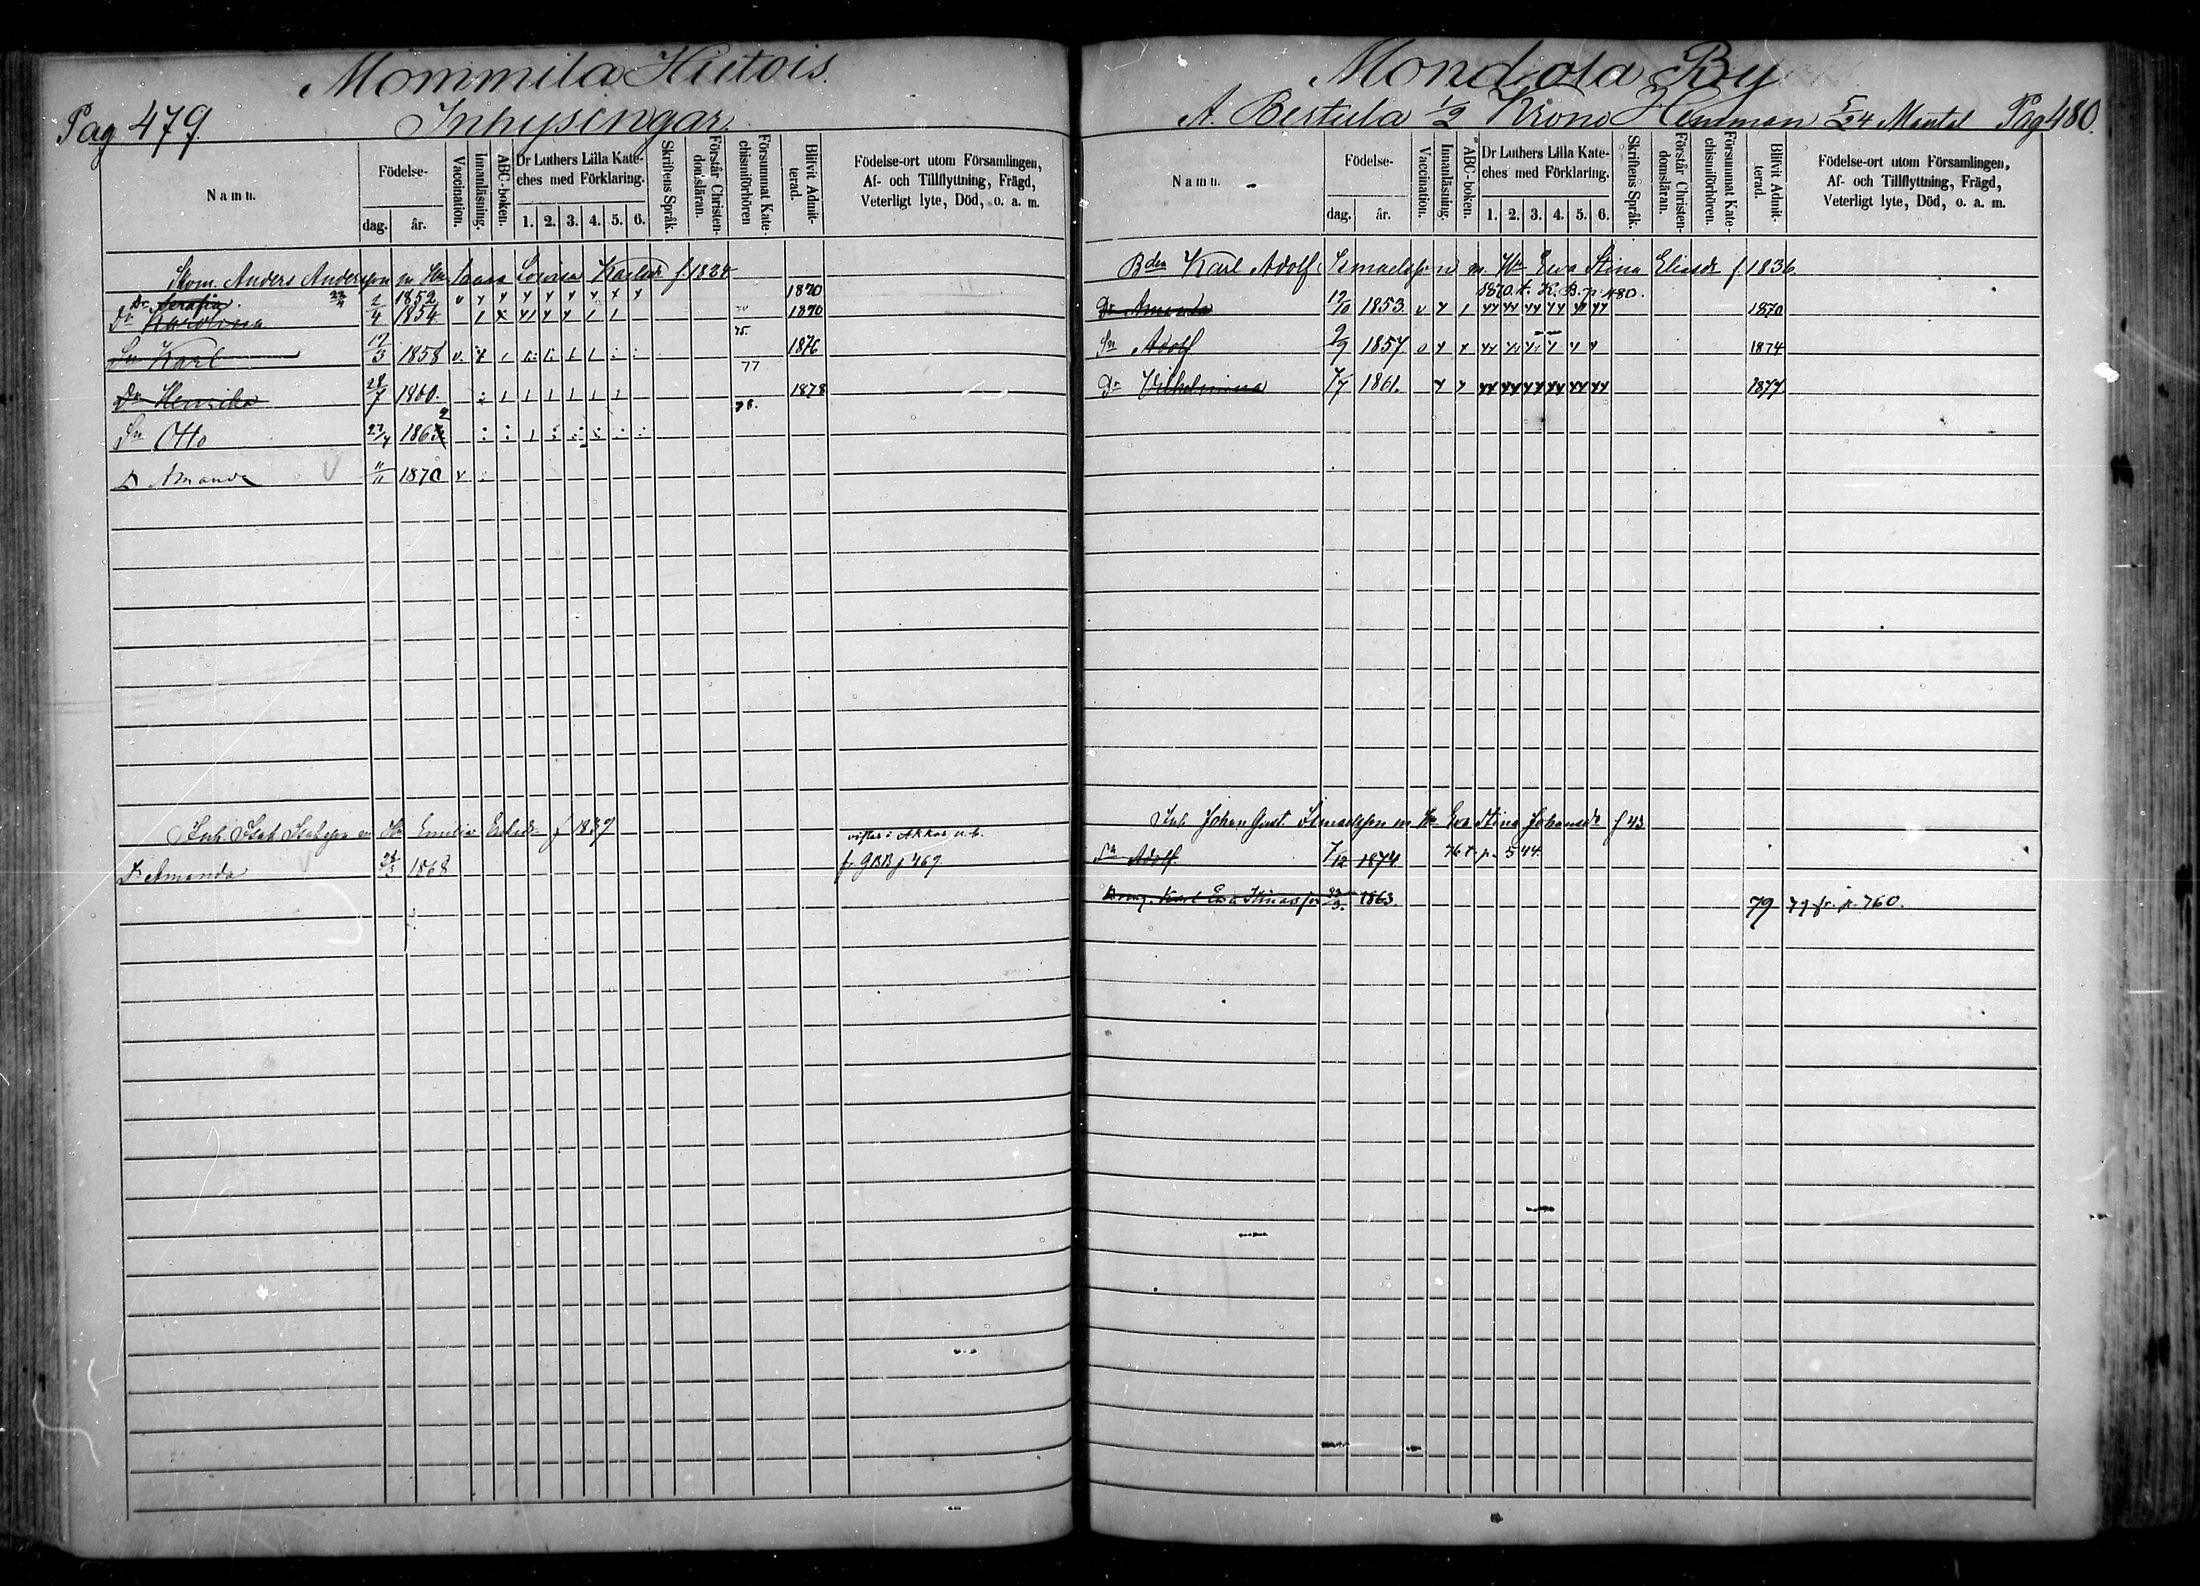 Mommila Hutois.
Pag 479. Inhysingar.
Namn.
Födelse-
dag. år.
Vaccination.
Innanläsning.
ABC-boken.
Dr Luthers Lilla Kateches med Förklaring.
1. 2. 3. 4. 5. 6.
Skriftens Språk.
Förstår Christendomsläran.
Försummat Katechismiförhören
Blifvit Admitterad.
Födelse-ort utom Församlingen,
Af- och Tillflyttning, Frägd,
Veterligt lyte, Död, o. a. m.
Anders Andersson m Hu Lovisa Karlsdr f. 1834
Dr Serafia 1852 1870
Dr Karolina 4 1854 1870
Sn Karl 17/3 1858 75. 1876
Dr Henrika 28/7 1860 77 1878
Sn Otto 23/4 186 78.
D Amanda 11/11 1870
Inh Isak Isaksson m Hu Emilia Eriksdr f 1839 vistas i Akkas n.b.
Dr Amanda 1868 fr GBB p 469
Mondola By
A. Bertula 1/2 Krono Hemman 5/24 Mantal Pag 480.
Namn.
Födelse-
dag. år.
Vaccination.
Innanläsning.
ABC-boken.
Dr Luthers Lilla Kateches med Förklaring.
1. 2. 3. 4. 5. 6.
Skriftens Språk.
Förstår Christendomsläran.
Försummat Katechismiförhören.
Blifvit Admitterad.
Födelse-ort utom Församlingen,
Af- och Tillflyttning, Frägd,
Veterligt lyte, Död, o. a. m.
Bden Karl Adolf Ismaelsson m. Hu Ewa Stina Eliasdr f 1836
1870 t. K. B. p 480.
Dr Amanda 12/10 1853 1870
Sn Adolf 2/9 1857 1874
Dr Vilhelmina 7/7 1861. 1877
Inh Johan Gust. Ismaelsson m Hu Eva Stina Johansdr f 43
Sn Adolf 7/12 1874 76 t. p. 544.
Dreng. Karl Eva Stinasson 1863. 79 79 fr. p. 760.